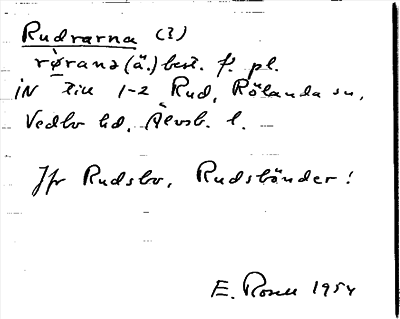 Rudrarna (?)
rø̀rana (ä.) best. f. pl.
IN till 1-2 Rud, Rölanda sn,
Vedbo hd, Älvsb. l.
Jfr Rudsbo, Rudsbönder!
E. Rosell 1954